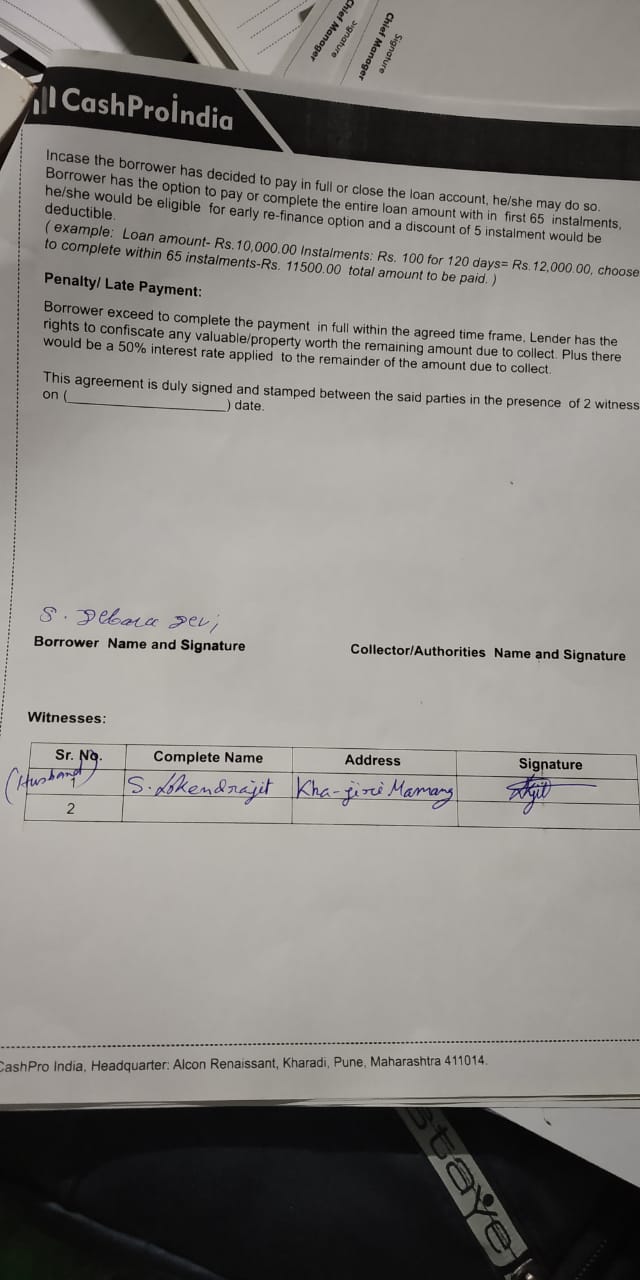 Signature
Chief Manager
Signature
Chief Manager
CashProIndia
Incase the borrower has decided to pay in full or close the loan account, he/she may do so.
Borrower has the option to pay or complete the entire loan amount with in first 65 instalments,
he/she would be eligible for early re-finance option and a discount of 5 instalment would be
deductible.
( example; Loan amount- Rs.10,000.00 Instalments: Rs. 100 for 120 days= Rs.12,000.00, choose
to complete within 65 instalments-Rs. 11500.00 total amount to be paid. )
Penalty/ Late Payment:
Borrower exceed to complete the payment in full within the agreed time frame, Lender has the
rights to confiscate any valuable/property worth the remaining amount due to collect. Plus there
would be a 50% interest rate applied to the remainder of the amount due to collect.
This agreement is duly signed and stamped between the said parties in the presence of 2 witness
on (____________________) date.
S. Devi
Borrower Name and Signature
Collector/Authorities Name and Signature
Witnesses:
Sr. No. Complete Name Address Signature
(Husband) 1 S. Lokendrajit Kha-jiri Mamang
2
CashPro India, Headquarter: Alcon Renaissant, Kharadi, Pune, Maharashtra 411014.
staye